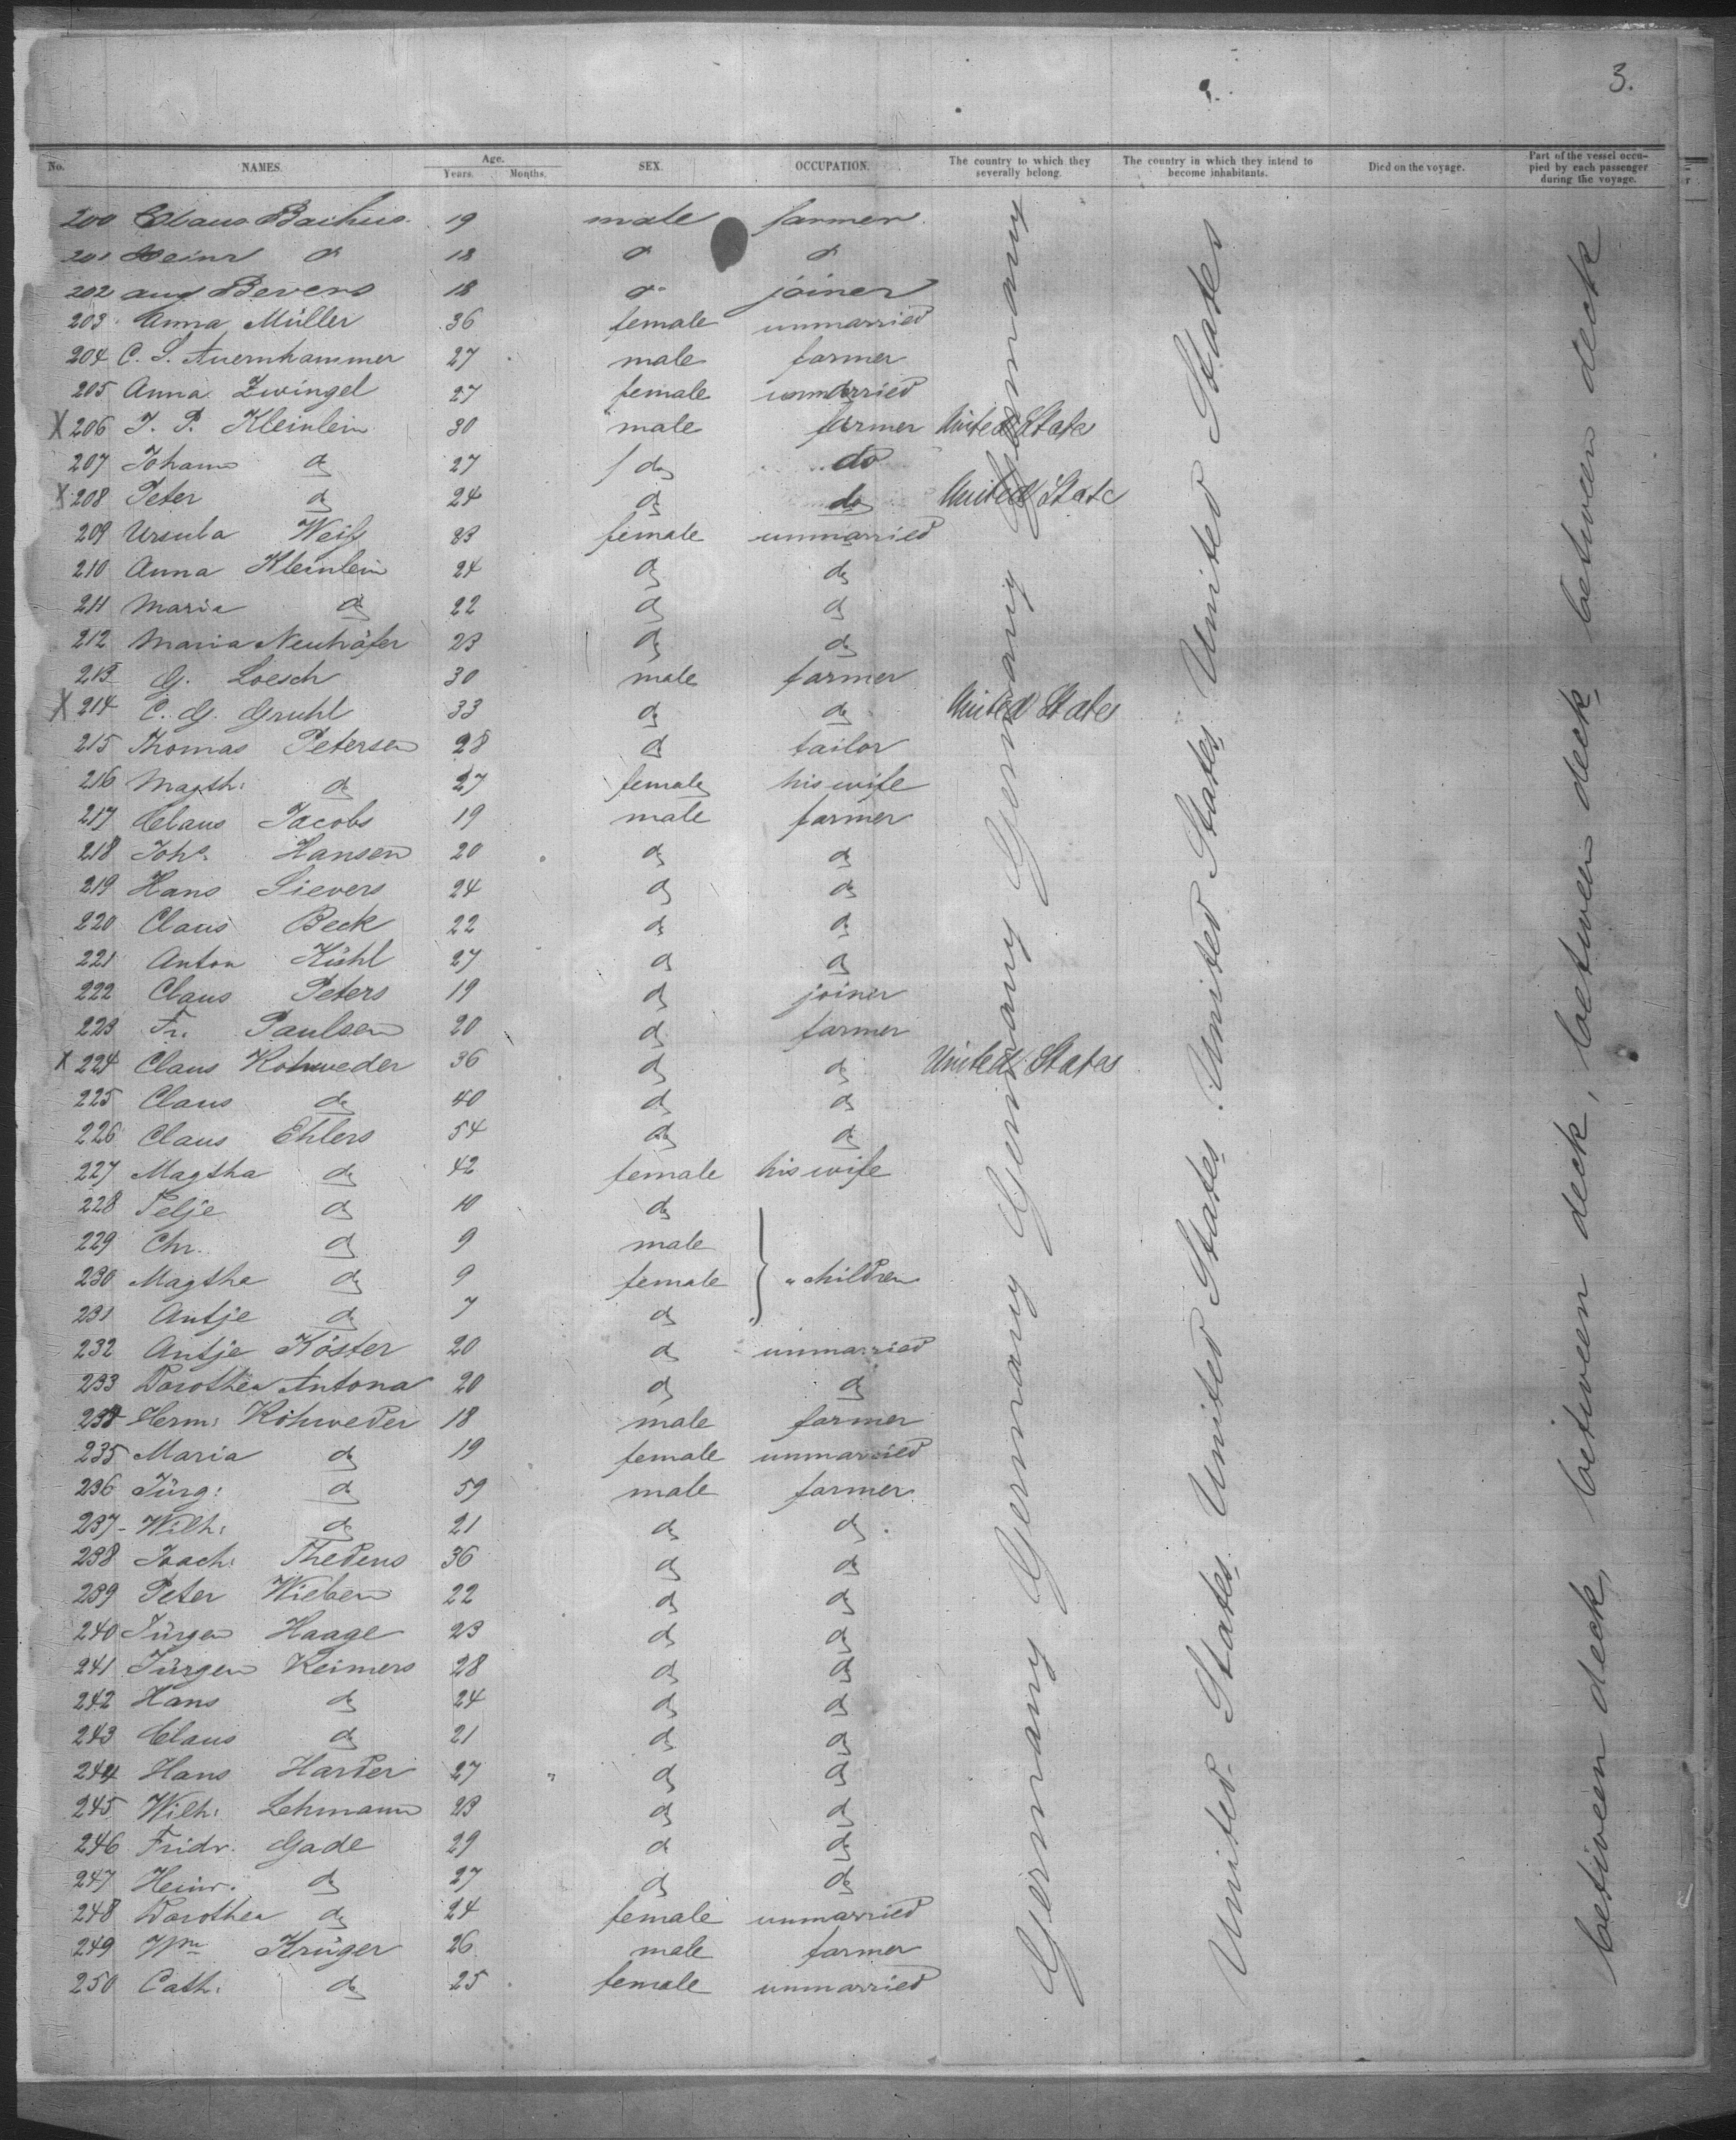 3.
No. NAMES. Age. Years. Months. SEX. OCCUPATION. The country to which they severally belong. The country in which they intend to become inhabitants. Died on the voyage. Part of the vessel occupied by each passenger during the voyage.
200 Claus Bachus 19 male farmer
201 Heinr do 18 do do
202 Aug Bevers 18 do joiner
203 Anna Müller 36 female unmarried
204 C. S. Auernhammer 27 male farmer
205 Anna Zwingel 27 female unmarried
X 206 J. P. Kleinlein 30 male farmer United States
207 Johann do 27 do do
X 208 Peter do 24 do do United State
209 Ursula Weiß 23 female unmarried
210 Anna Kleinlein 24 do do
211 Maria do 22 do do
212 Maria Neuhöfer 23 do do
213 G. Loesch 30 male farmer
X 214 C. G. Gruhl 33 do do United States
215 Thomas Petersen 28 do tailor
216 Magth: do 27 female his wife
217 Claus Jacobs 19 male farmer
218 Johs. Hansen 20 do do
219 Hans Sievers 24 do do
220 Claus Beck 22 do do
221 Anton Kühl 27 do do
222 Claus Peters 19 do joiner
223 Fr. Paulsen 20 do farmer
X 224 Claus Rohweder 36 do do United States
225 Claus do 40 do do
226 Claus Ehlers 54 do do
227 Magtha do 42 female his wife
228 Pelje do 10 do
229 Chr. do 9 male
230 Magtha do 9 female " children
231 Antje do 7 do
232 Antje Köster 20 do unmarried
233 Dorothea Antona 20 do do
234 Herm: Rohweder 18 male farmer
235 Maria do 19 female unmarried
236 Jürg: do 59 male farmer
237 Wilh: do 21 do do
238 Joach: Thedens 36 do do
239 Peter Wieben 22 do do
240 Jürgen Haage 23 do do
241 Jürgen Reimers 28 do do
242 Hans do 24 do do
243 Claus do 21 do do
244 Hans Harder 27 do do
245 Wilh: Lehmann 23 do do
246 Fridr. Gade 29 do do
247 Heinr. do 27 do do
248 Dorothea do 24 female unmarried
249 Wm Krüger 26 male farmer
250 Cath: do 25 female unmarried
Germany Germany Germany Germany Germany Germany
United States United States United States United States
between deck, between deck, between deck, between deck